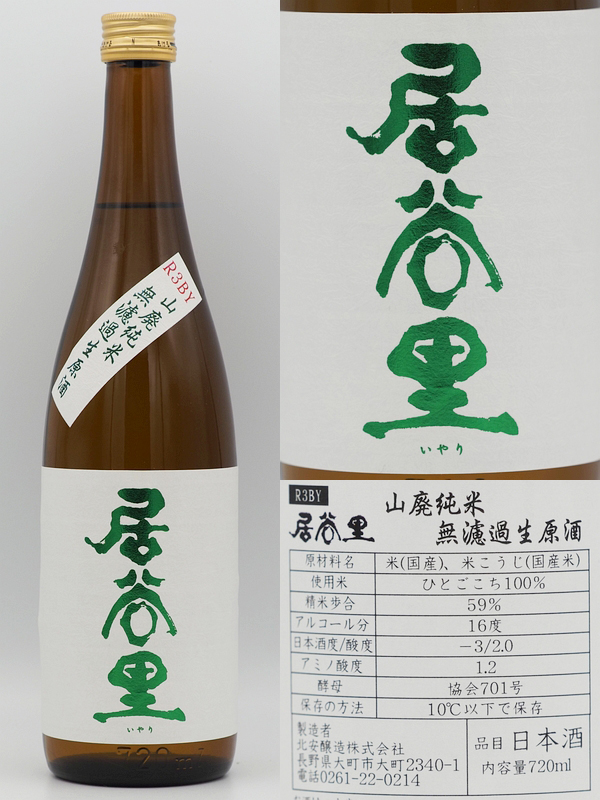 R3BY
山廃純米
無濾過生原酒
居谷里
いやり
720ml
居谷里
いやり
R3BY
居谷里
山廃純米
無濾過生原酒
原材料名 米(国産)、米こうじ(国産米)
使用米 ひとごこち100%
精米歩合 59%
アルコール分 16度
日本酒度/酸度 −3/2.0
アミノ酸度 1.2
酵母 協会701号
保存の方法 10℃以下で保存
製造者
北安醸造株式会社
長野県大町市大町2340-1
電話0261-22-0214
品目 日本酒
内容量720ml